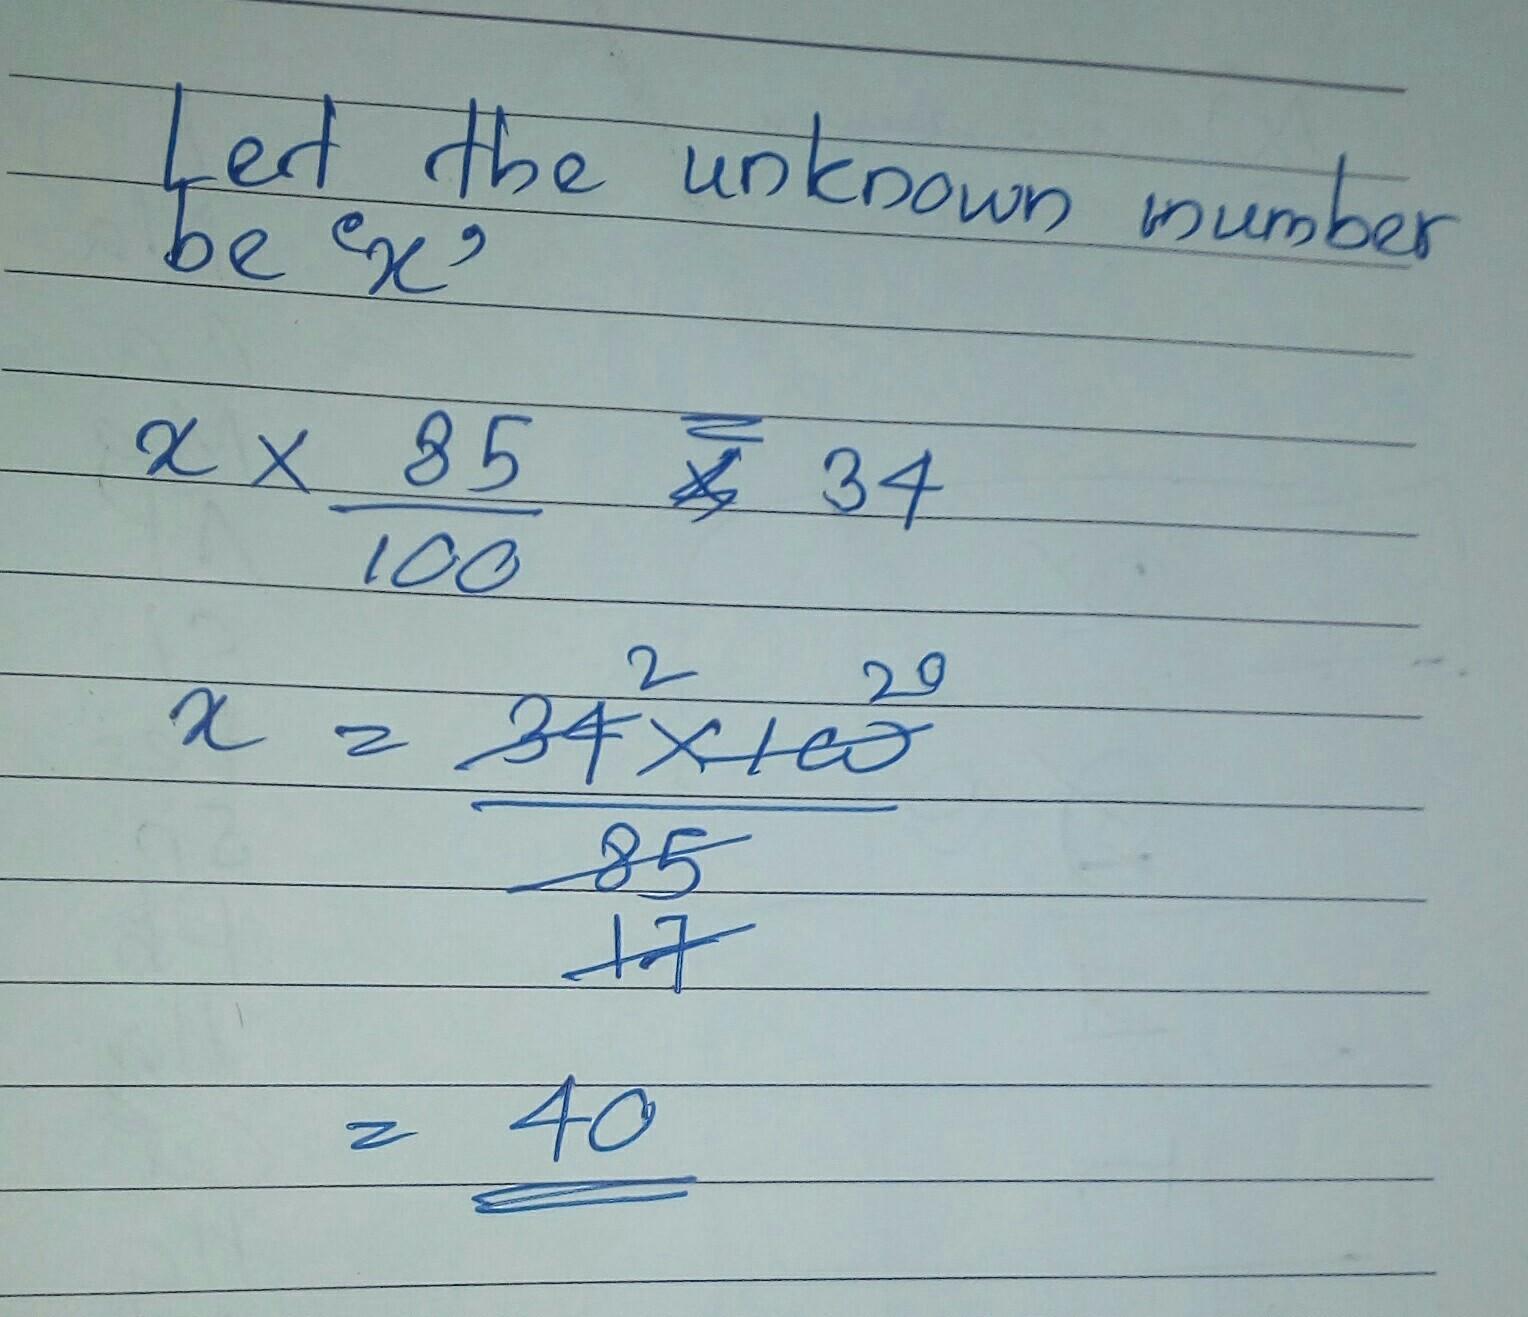 Let the unknown number
be 'x'
x × 85/100 = 34
x = 34 2 × 100 20
85
17
= 40